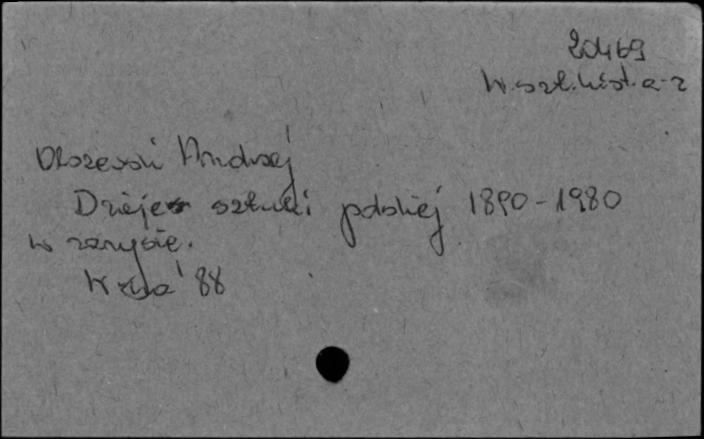 20469
W.szt.hist.a-z
Olszewski Andrzej
Dzieje sztuki polskiej 1890-1980
w zarysie.
W-wa '88